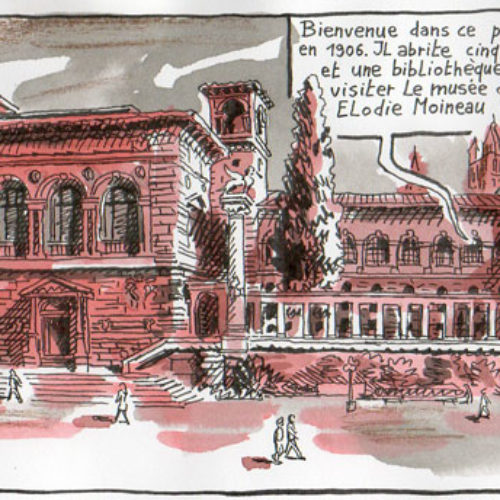 Bienvenue dans ce p
en 1906. Il abrite cinq
et une bibliothèque
visiter Le musée d
ELodie Moineau